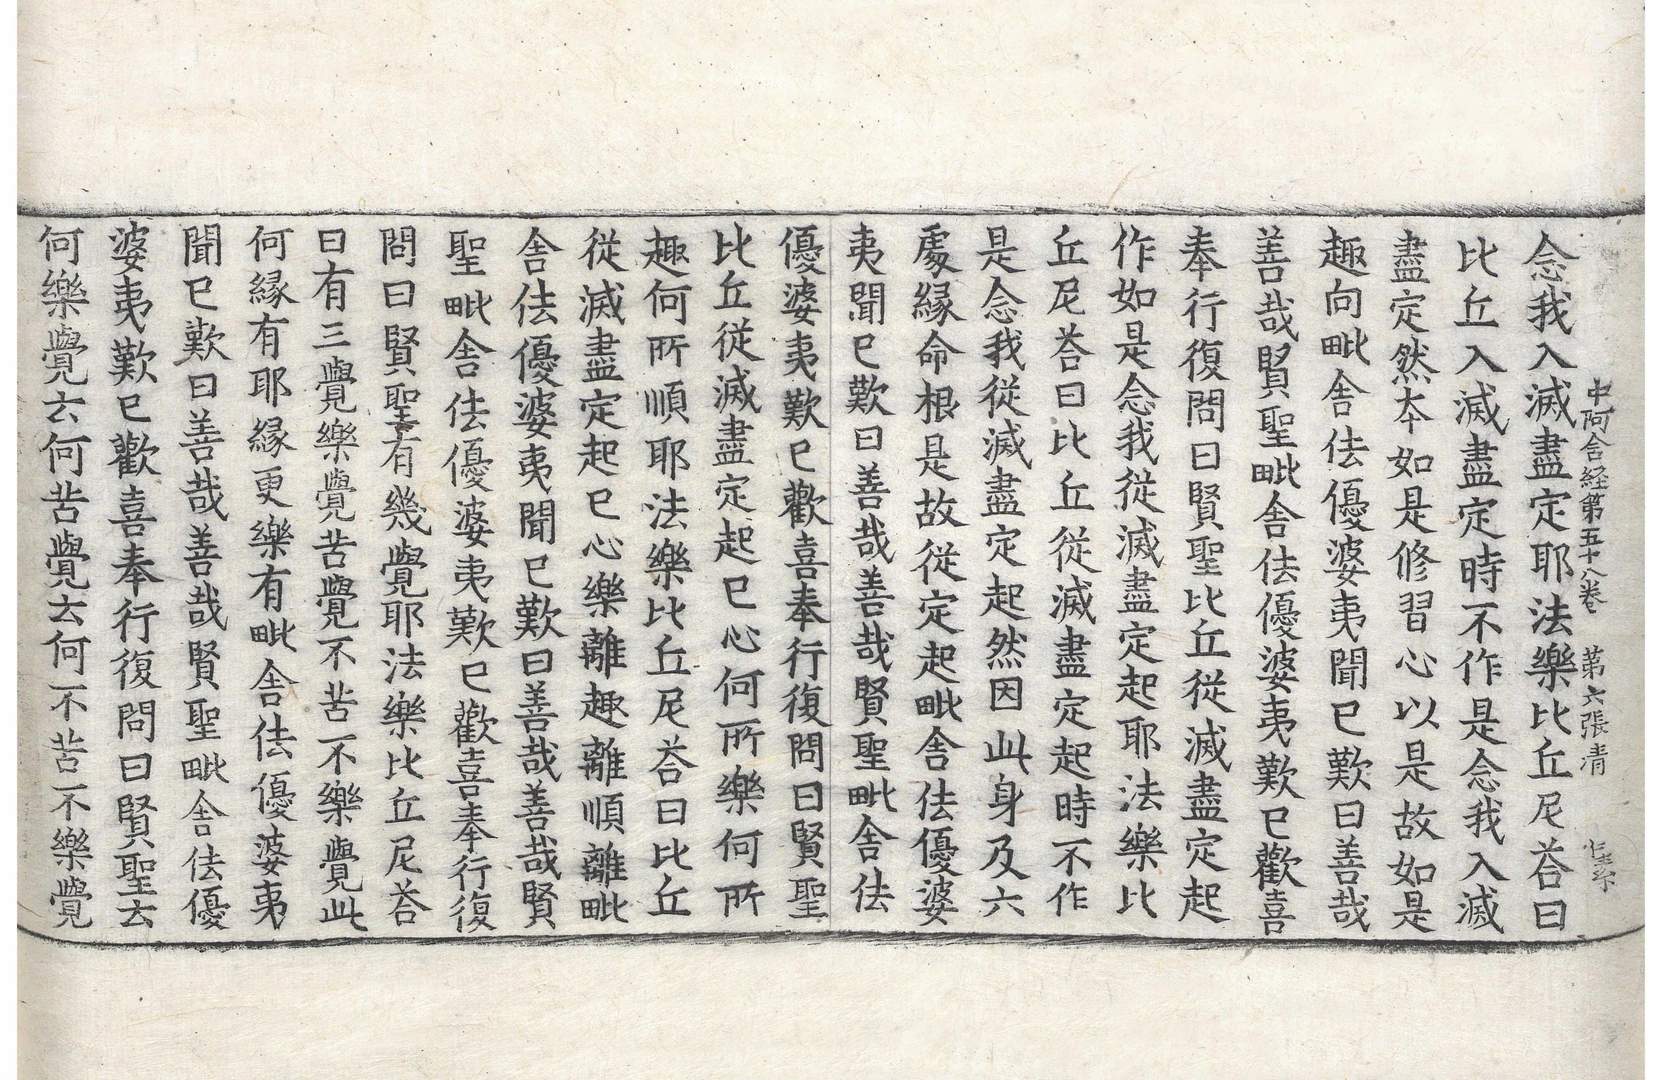 中阿含経第五十八巻　第六張清
念我入滅盡定耶法樂比丘尼荅曰
比丘入滅盡定時不作是念我入滅
盡定然夲如是修習心以是故如是
趣向毗舍佉優婆夷聞已歎曰善哉
善哉賢聖毗舍佉優婆夷歎已歡喜
奉行復問曰賢聖比丘從滅盡定起
作如是念我從滅盡定起耶法樂比
丘尼荅曰比丘從滅盡定起時不作
是念我從滅盡定起然因此身及六
處縁命根是故從定起毗舍佉優婆
夷聞已歎曰善哉善哉賢聖毗舍佉
優婆夷歎已歡喜奉行復問曰賢聖
比丘從滅盡定起已心何所樂何所
趣何所順耶法樂比丘尼荅曰比丘
從滅盡定起已心樂離趣離順離毗
舍佉優婆夷聞已歎曰善哉善哉賢
聖毗舍佉優婆夷歎已歡喜奉行復
問曰賢聖有幾覺耶法樂比丘尼荅
曰有三覺樂覺苦覺不苦不樂覺此
何縁有耶縁更樂有毗舍佉優婆夷
聞已歎曰善哉善哉賢聖毗舍佉優
婆夷歎已歡喜奉行復問曰賢聖云
何樂覺云何苦覺云何不苦不樂覺